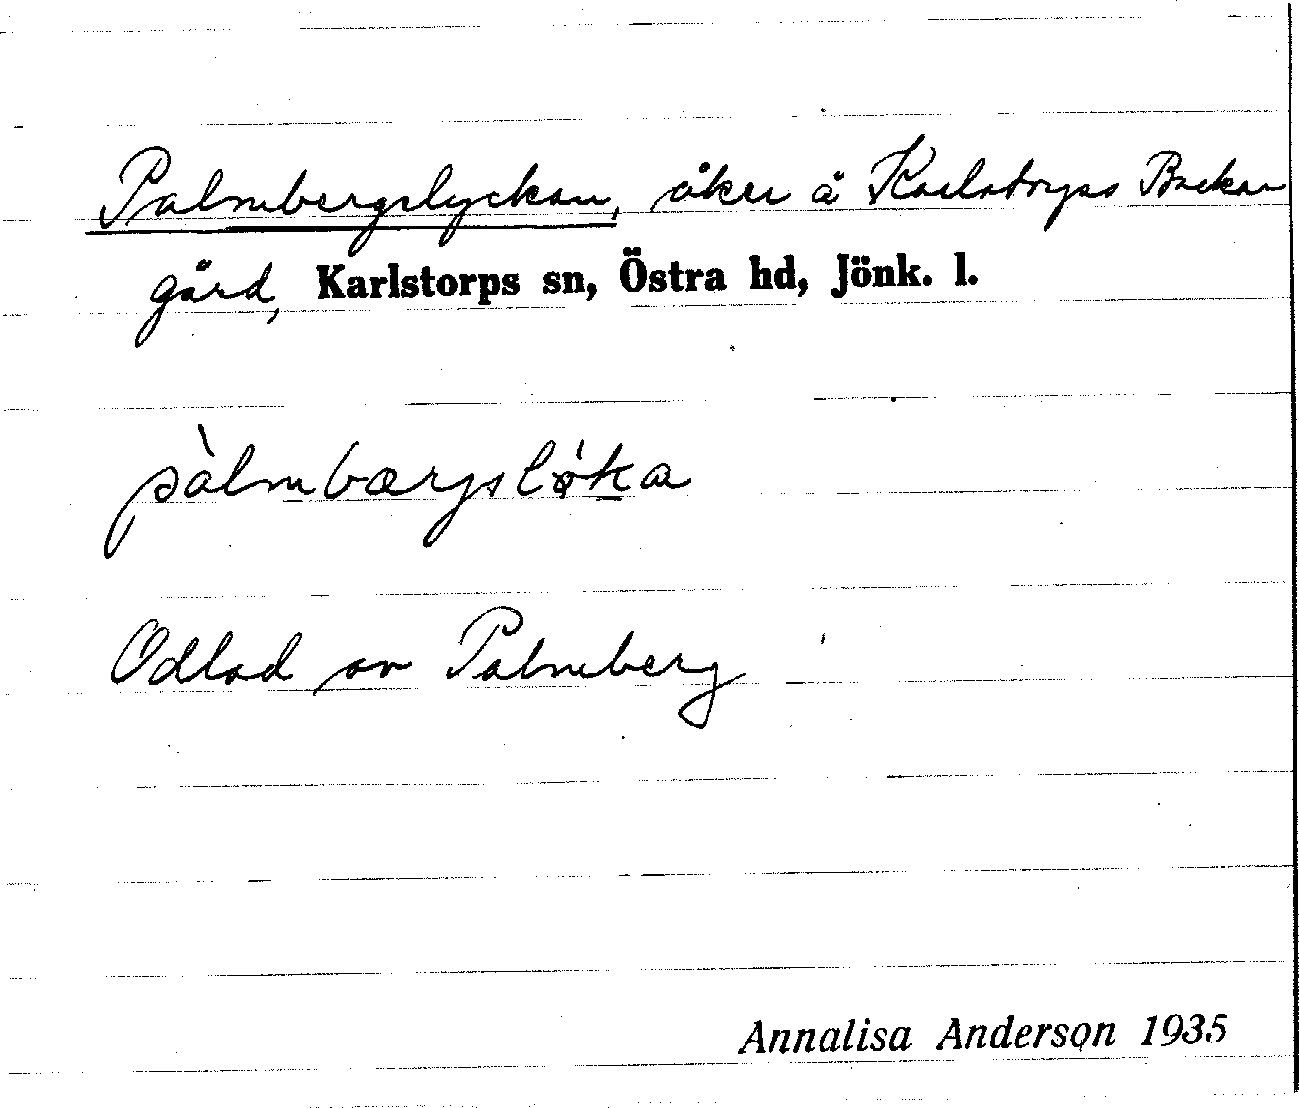 Palmbergslyckan, åker å Karlstorps Backa
gård, Karlstorps sn, Östra hd, Jönk. l.
pàlmbærjslö́ka
Odlad av Palmberg
Annalisa Anderson 1935